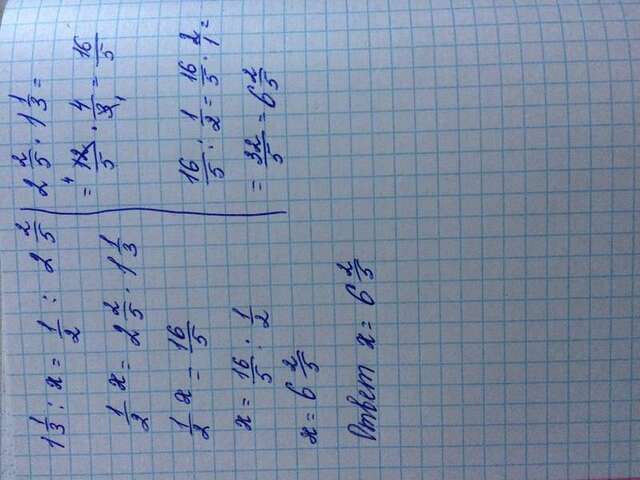 1 1/3 : x = 1/2 : 2 2/5
1/2 x = 2 2/5 · 1 1/3
1/2 x = 16/5
x = 16/5 : 1/2
x = 6 2/5
Ответ x = 6 2/5
2 2/5 · 1 1/3 =
= 4 12/5 · 4/3 1 = 16/5
16/5 : 1/2 = 16/5 · 2/1 =
= 32/5 = 6 2/5